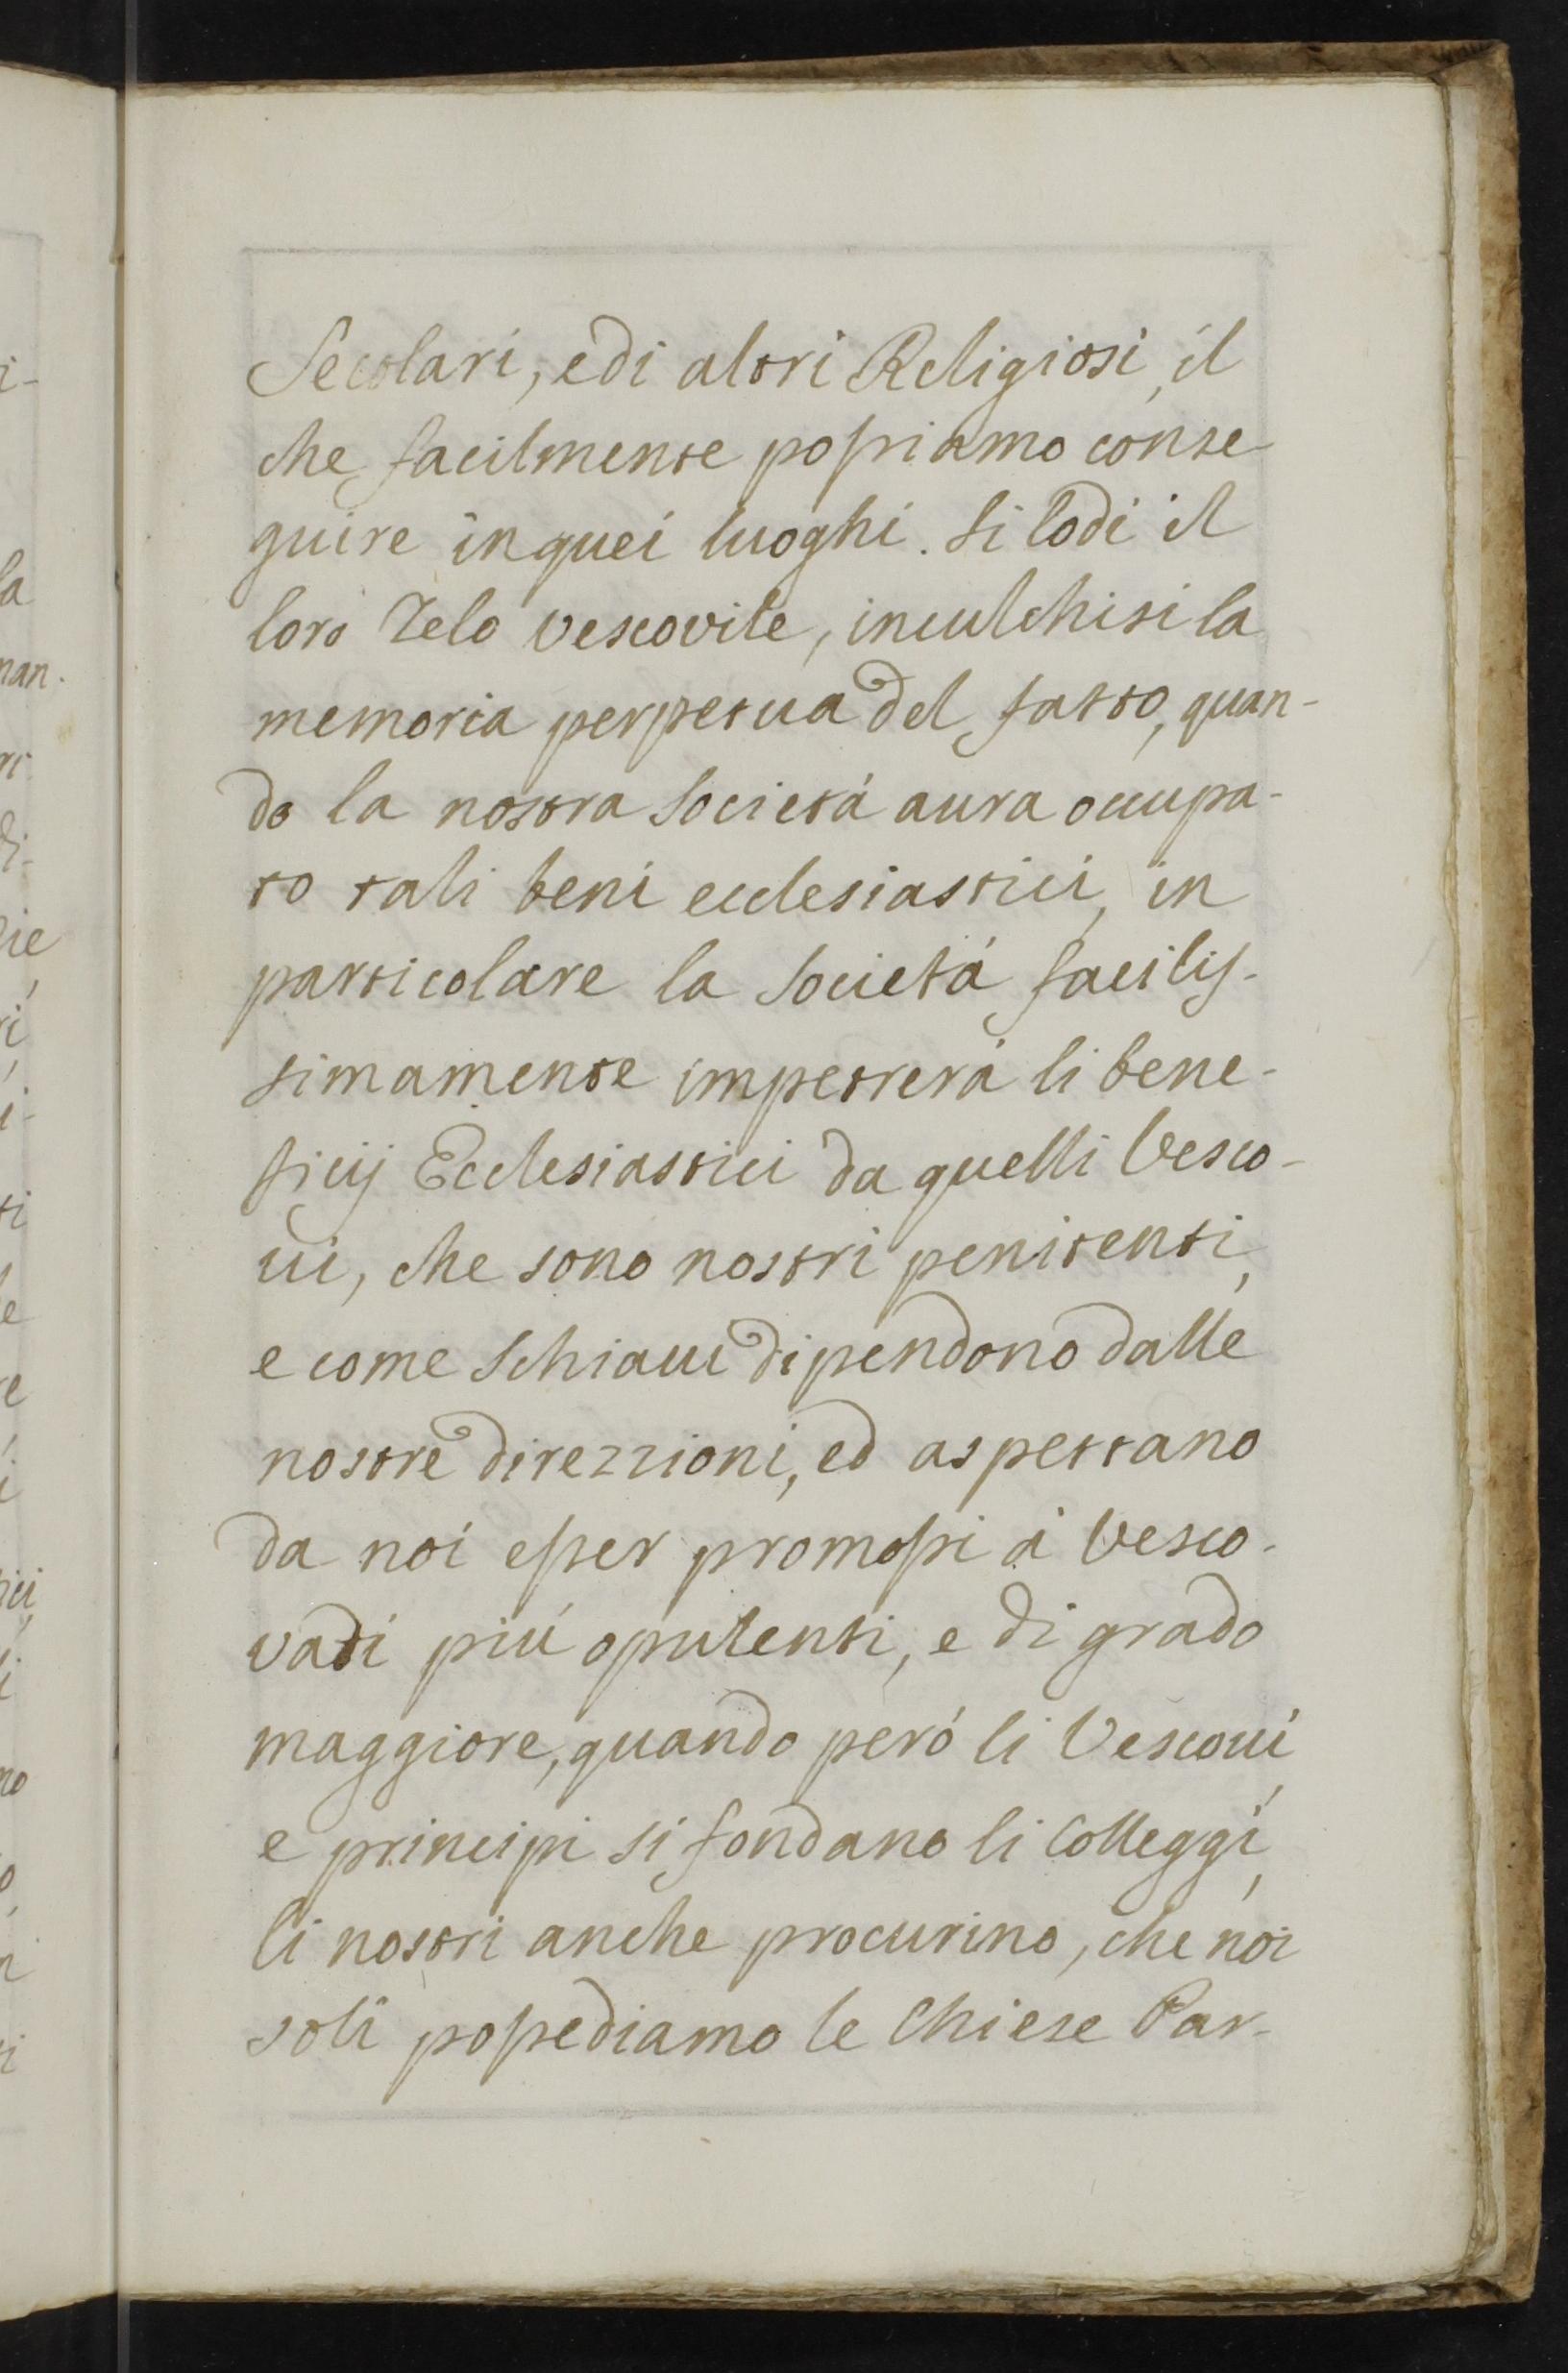 Secolari, e di altri Religiosi, il
che facilmente possiamo conse
guire in quei luoghi. Si lodi il
loro Zelo vescovile, inculchisi la
memoria perpetua del fatto, quan-
do la nostra Società aura occupa-
to tali beni ecclesiastici, in
particolare la Società facilis-
simamente impetrerà li bene-
ficij Ecclesiastici da quelli Vesco-
ui, che sono nostri penitenti,
e come Schiaui dipendono dalle
nostre direzzioni, ed aspettano
da noi esser promossi à Vesco-
vati più opulenti, e di grado
maggiore, quando però li Vescoui,
e principi si fondano li Colleggi,
li nostri anche procurino, che noi
soli possediamo le Chiese Par-